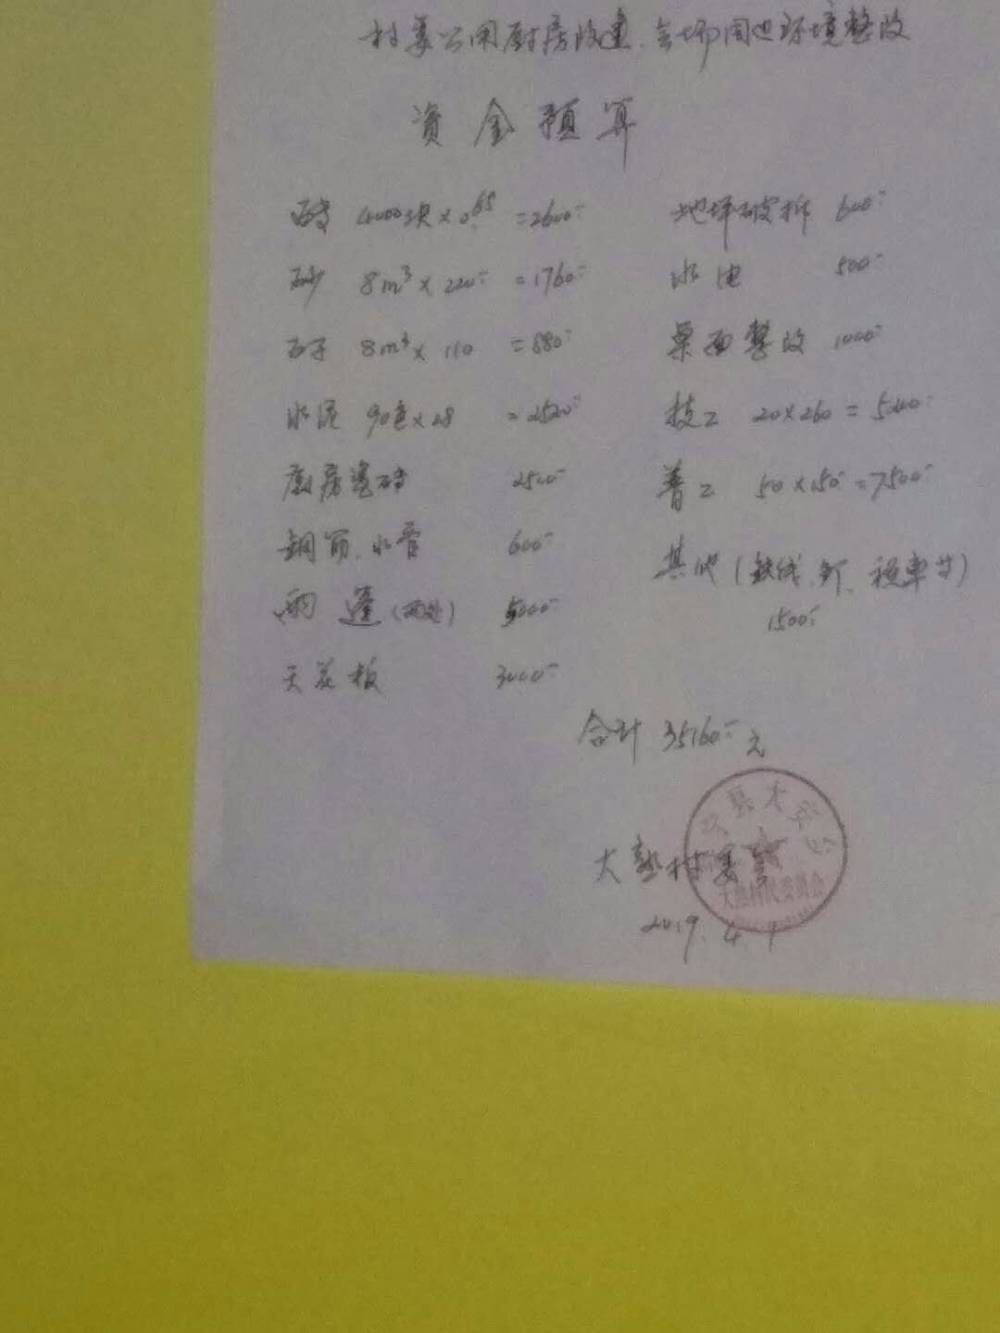 村委公用厨房改建、会场周边环境整改
资金预算
砖 4000块×0.65 =2600-
砂 8m³×220- =1760-
石子 8m³×110 =880-
水泥 90包×28 =2520-
厨房瓷砖 2500-
钢筋、水管 600-
雨蓬(两处) 5000-
天花板 3000-
地坪破拆 600-
水电 500-
桌面整改 1000-
技工 20×260=5200-
普工 50×150=7500-
其他(铁线、钉、租车等)
1500-
合计 35160-元
大塾村委会
2019.4.1
村民委员会